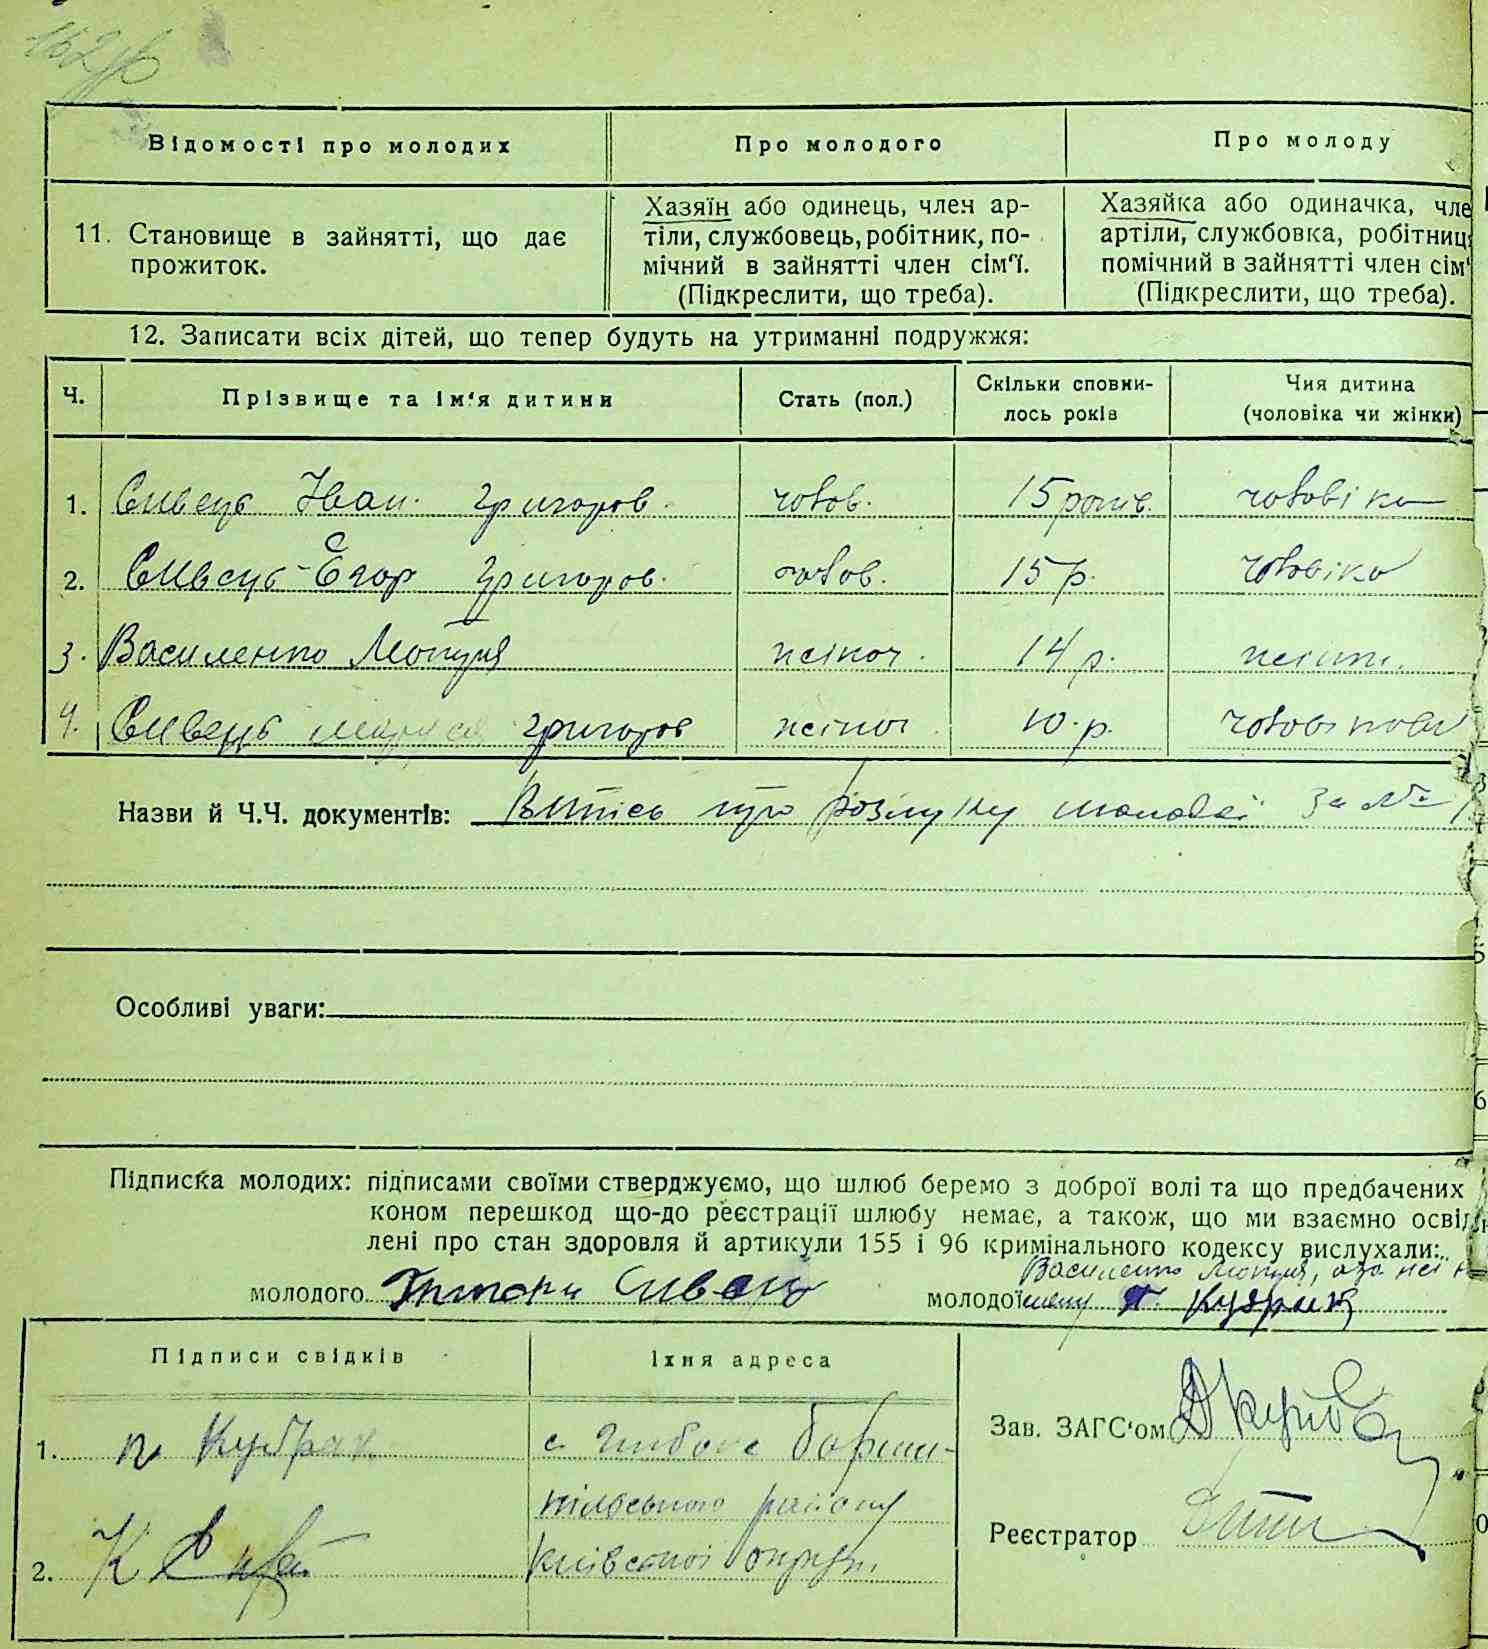 Відомості про молодих
Про молодого
Про молоду
11. Становище в зайнятті, що дає
прожиток.
Хазяїн або одинець, член ар-
тіли, службовець, робітник, по-
мічний в зайнятті член сім'ї.
(Підкреслити, що треба).
Хазяйка або одиначка, чле
артіли, службовка, робітниц
помічний в зайнятті член сім'
(Підкреслити, що треба).
12. Записати всіх дітей, що тепер будуть на утриманні подружжя:
Ч.
Прізвище та ім'я дитини
Стать (пол.)
Скільки сповни-
лось років
Чия дитина
(чоловіка чи жінки)
1. Сивець Іван григоров. чолов. 15 років. чоловіка
2. Сивець Єгор григоров. чолов. 15 р. чоловіка
3. Василенко Мотря жіноч. 14 р.
4. Сивець григоров жіноч 10 р.
Назви й Ч.Ч. документів: Витіс про розлуку молодої за №
Особливі уваги:
Підписка молодих: підписами своїми стверджуємо, що шлюб беремо з доброї волі та що предбачених
коном перешкод що-до реєстрації шлюбу немає, а також, що ми взаємно освід
лені про стан здоровля й артикули 155 і 96 кримінального кодексу вислухали:
Василенко Мотря, а за неї
молодого Григорий Сивец молодої
Підписи свідків
Їхня адреса
1. п Кубрак
с. Глибоке Бориш-
пільського району
київської округи
2. К
Зав. ЗАГС'ом
Реєстратор